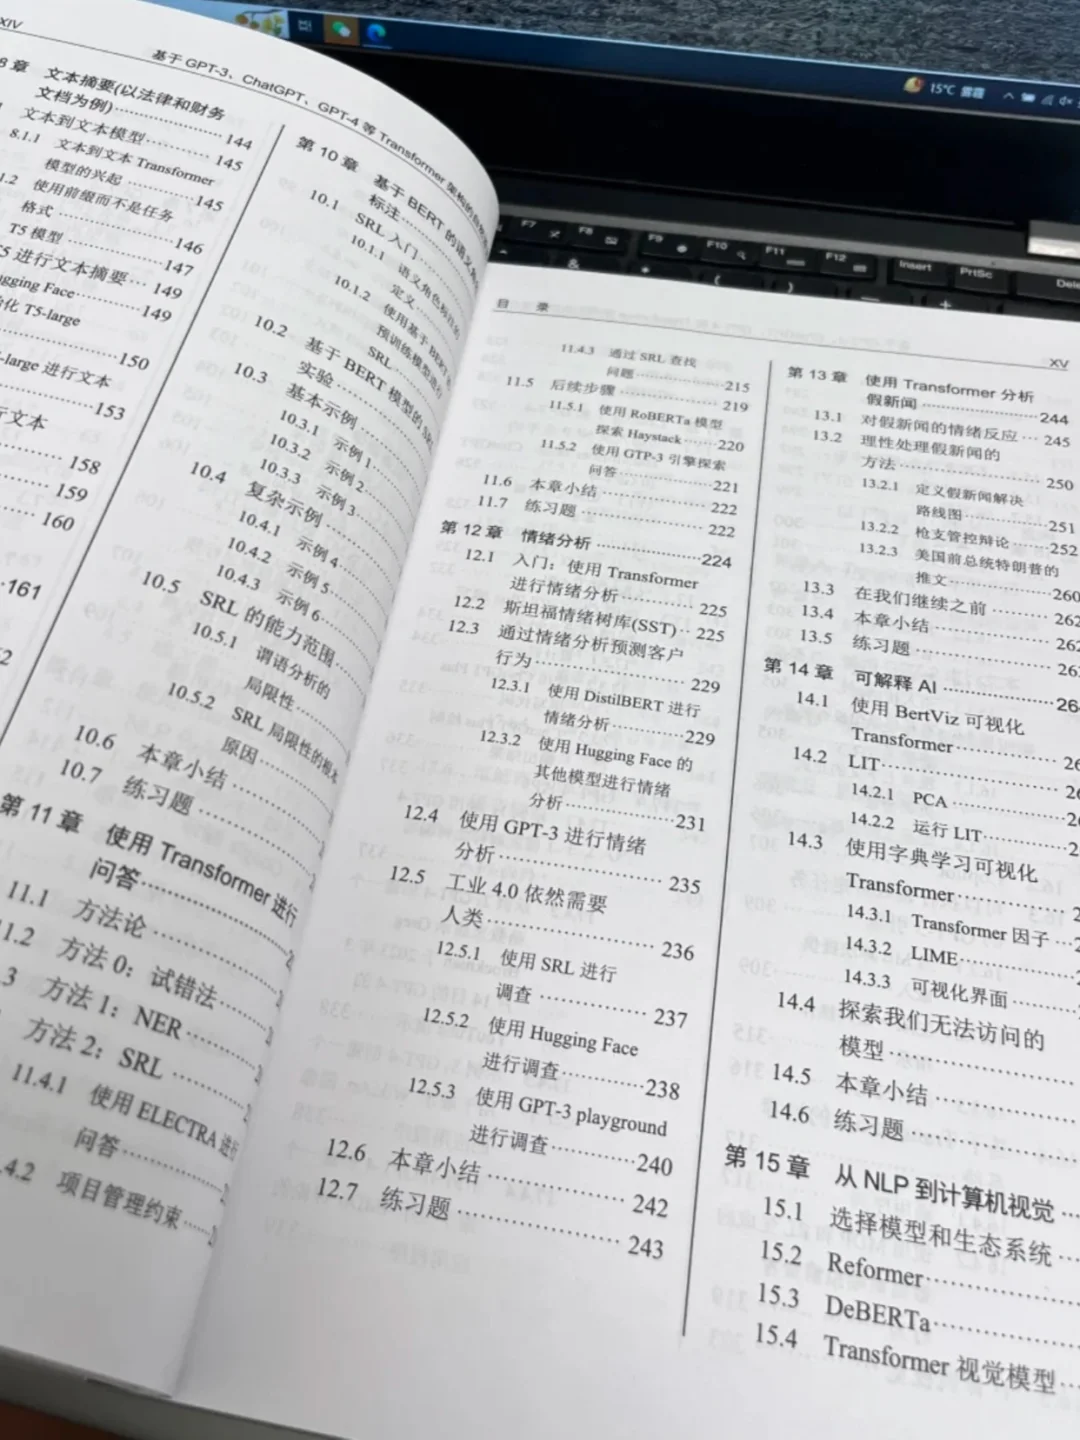 XIV
基于 GPT-3、ChatGPT、GPT-4 等 Transformer 架构的自然
8 章 文本摘要(以法律和财务
文档为例) 144
文本到文本模型 145
8.1.1 文本到文本 Transformer
模型的兴起 145
1.2 使用前缀而不是任务
格式 146
T5 模型 147
5 进行文本摘要 149
gging Face 149
化 T5-large
150
-large 进行文本
153
行文本
158
159
160
161
第 10 章 基于 BERT 的语义角
标注
10.1 SRL 入门
10.1.1 语义角色标注的
定义
10.1.2 使用基于 BERT 的
预训练模型进行
SRL
10.2 基于 BERT 模型的 SRL
实验
10.3 基本示例
10.3.1 示例 1
10.3.2 示例 2
10.3.3 示例 3
10.4 复杂示例
10.4.1 示例 4
10.4.2 示例 5
10.4.3 示例 6
10.5 SRL 的能力范围
10.5.1 谓语分析的
局限性
10.5.2 SRL 局限性的根本
原因
10.6 本章小结
10.7 练习题
第 11 章 使用 Transformer 进行
问答
11.1 方法论
11.2 方法 0：试错法
3 方法 1：NER
方法 2：SRL
11.4.1 使用 ELECTRA 进行
问答
4.2 项目管理约束
目 录
XV
11.4.3 通过 SRL 查找
问题 215
11.5 后续步骤 219
11.5.1 使用 RoBERTa 模型
探索 Haystack 220
11.5.2 使用 GTP-3 引擎探索
问答 221
11.6 本章小结 222
11.7 练习题 222
第 12 章 情绪分析 224
12.1 入门：使用 Transformer
进行情绪分析 225
12.2 斯坦福情绪树库(SST) 225
12.3 通过情绪分析预测客户
行为 229
12.3.1 使用 DistilBERT 进行
情绪分析 229
12.3.2 使用 Hugging Face 的
其他模型进行情绪
分析 231
12.4 使用 GPT-3 进行情绪
分析 235
12.5 工业 4.0 依然需要
人类 236
12.5.1 使用 SRL 进行
调查 237
12.5.2 使用 Hugging Face
进行调查 238
12.5.3 使用 GPT-3 playground
进行调查 240
12.6 本章小结 242
12.7 练习题 243
第 13 章 使用 Transformer 分析
假新闻 244
13.1 对假新闻的情绪反应 245
13.2 理性处理假新闻的
方法 250
13.2.1 定义假新闻解决
路线图 251
13.2.2 枪支管控辩论 252
13.2.3 美国前总统特朗普的
推文 260
13.3 在我们继续之前 262
13.4 本章小结 262
13.5 练习题
第 14 章 可解释 AI 264
14.1 使用 BertViz 可视化
Transformer
14.2 LIT
14.2.1 PCA
14.2.2 运行 LIT
14.3 使用字典学习可视化
Transformer
14.3.1 Transformer 因子
14.3.2 LIME
14.3.3 可视化界面
14.4 探索我们无法访问的
模型
14.5 本章小结
14.6 练习题
第 15 章 从 NLP 到计算机视觉
15.1 选择模型和生态系统
15.2 Reformer
15.3 DeBERTa
15.4 Transformer 视觉模型
15℃ 雾霾
F7
F8
F9
F10
F11
F12
Insert
PrtSc
Dele
&
*
(
)
+